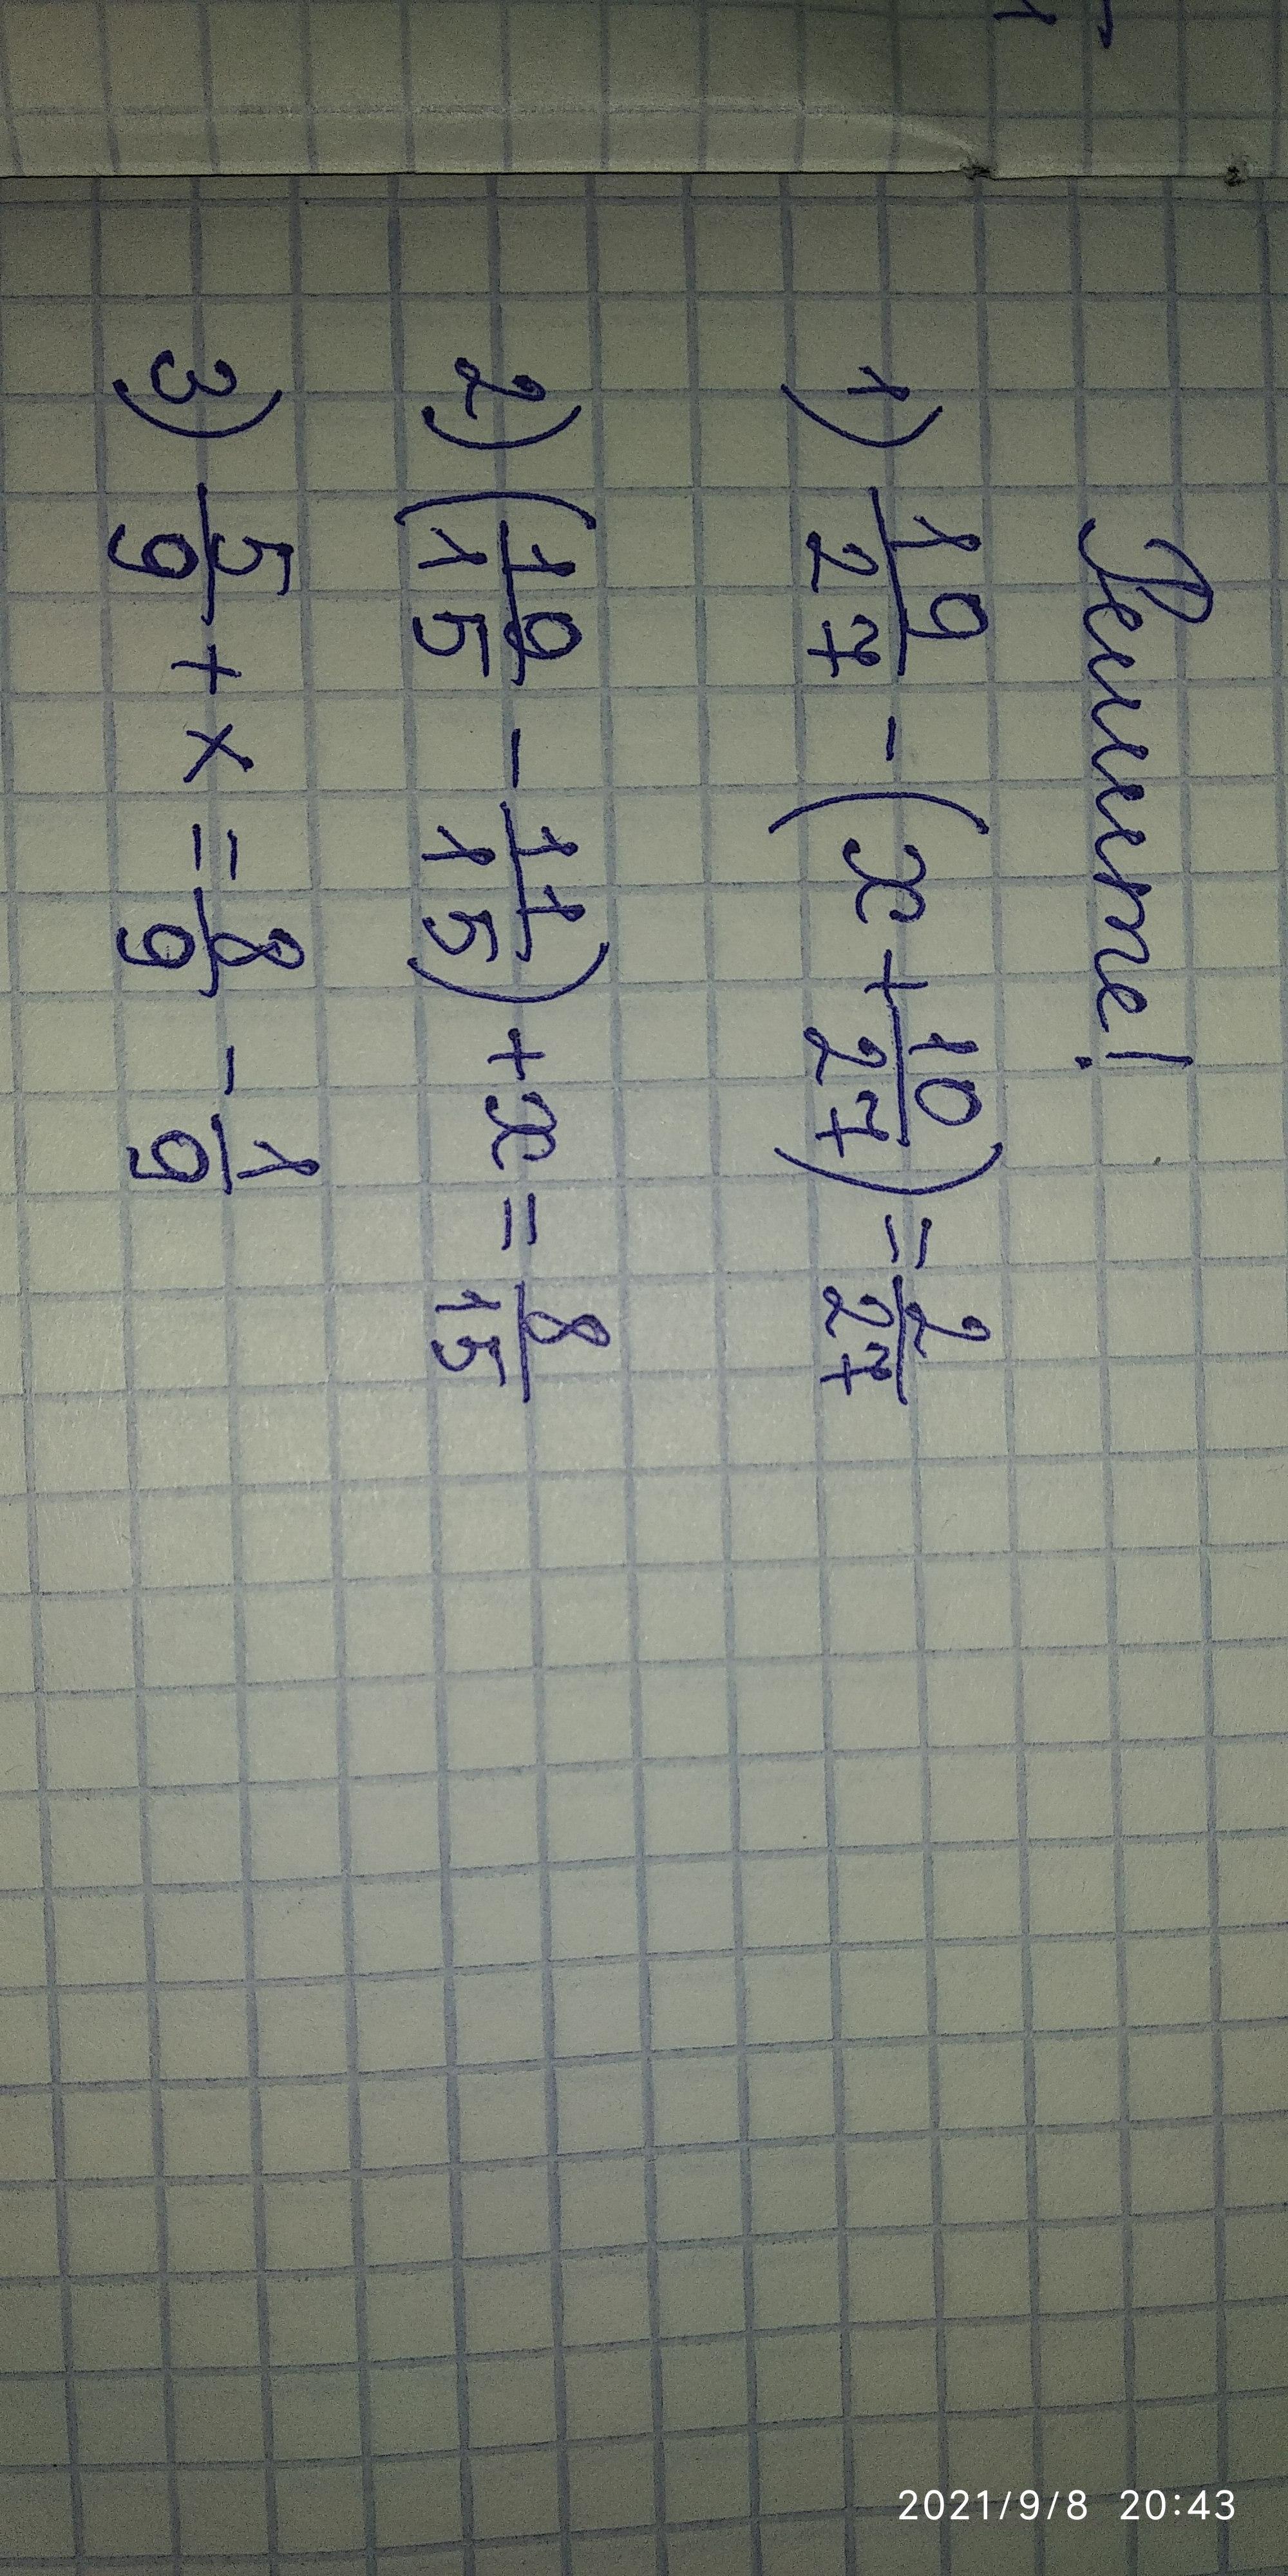 Решите!
1) 19/27 - (x + 10/27) = 2/27
2) (19/15 - 11/15) + x = 8/15
3) 5/9 + x = 8/9 - 1/9
2021/9/8 20:43